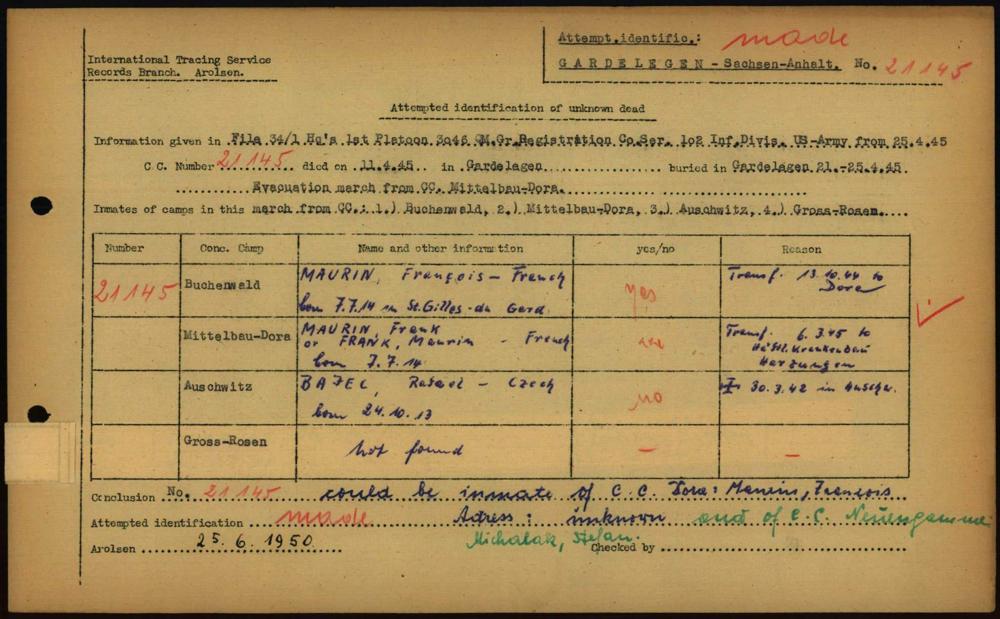 International Tracing Service
Records Branch. Arolsen.
Attempt.identific.: made
GARDELEGEN - Sachsen-Anhalt. No. 21145
Attempted identification of unknown dead
Information given in File 34/1 Hq's 1st Platoon 3046 QM.Gr.Registration Co.Ser. 102 Inf.Divis. US-Army from 25.4.45
C.C. Number 21145 died on 11.4.45 in Gardelagen buried in Gardelagen 21.-25.4.45
Evacuation march from CC. Mittelbau-Dora.
Inmates of camps in this march from CC.: 1.) Buchenwald, 2.) Mittelbau-Dora, 3.) Auschwitz, 4.) Gross-Rosen.
Number Conc. Camp Name and other information yes/no Reason
21145 Buchenwald MAURIN, François - French yes Transf. 13.10.44 to Dora
born 7.7.14 in St.Gilles-du Gard
Mittelbau-Dora MAURIN, Frank Transf. 6.3.45 to
or FRANK, Maurin - French Häftl. Krankenbau
born 7.7.14 Harzungen
Auschwitz Czech no 30.3.42 in
born 24.10.13
Gross-Rosen not found - -
Conclusion No. 21145 could be inmate of C.C. Dora: Maurin, François
Attempted identification made Adress: unknown and of C.C. Neuengamme
Michalak, Stefan.
Arolsen 25.6.1950 Checked by